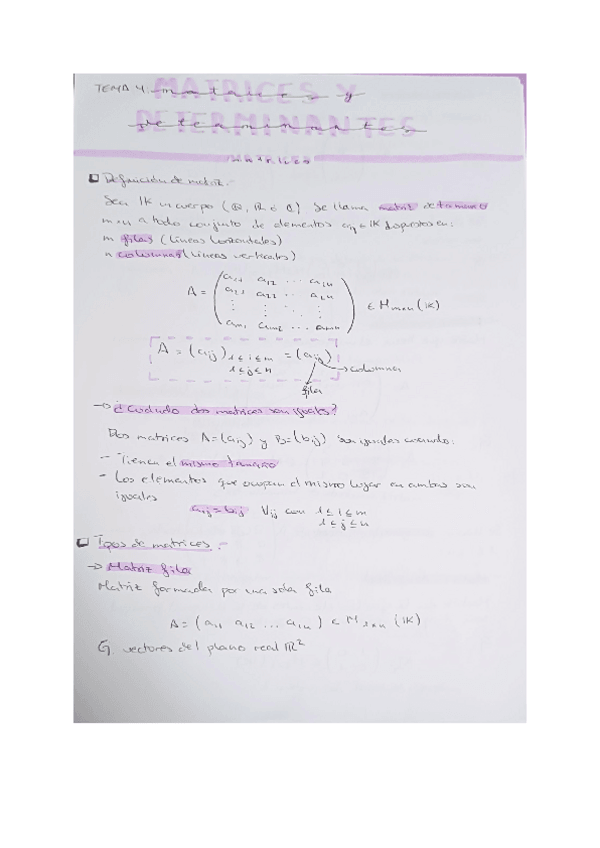 TEMA 4: MATRICES Y
DETERMINANTES
MATRICES
Definición de matriz.-
Sea K un cuerpo (Q, R o C) se llama matriz de tamaño
m×n a todo conjunto de elementos aij ∈ K dispuestos en:
m filas (líneas horizontales)
n columnas (líneas verticales)
A = ( a11 a12 ... a1n
a21 a22 ... a2n
⋮ ⋮ ⋱ ⋮
am1 am2 ... amn ) ∈ Mm×n (K)
A = (aij) 1≤i≤m = (aij) → columna
1≤j≤n
fila
→ ¿Cuándo dos matrices son iguales?
Dos matrices A=(aij) y B=(bij) son iguales cuando:
- Tienen el mismo tamaño
- Los elementos que ocupan el mismo lugar en ambas son
iguales
aij = bij ∀ij con 1≤i≤m
1≤j≤n
Tipos de matrices.-
→ Matriz fila
Matriz formada por una sola fila
A = (a11 a12 ... a1n) ∈ M1×n (K)
vectores del plano real R²